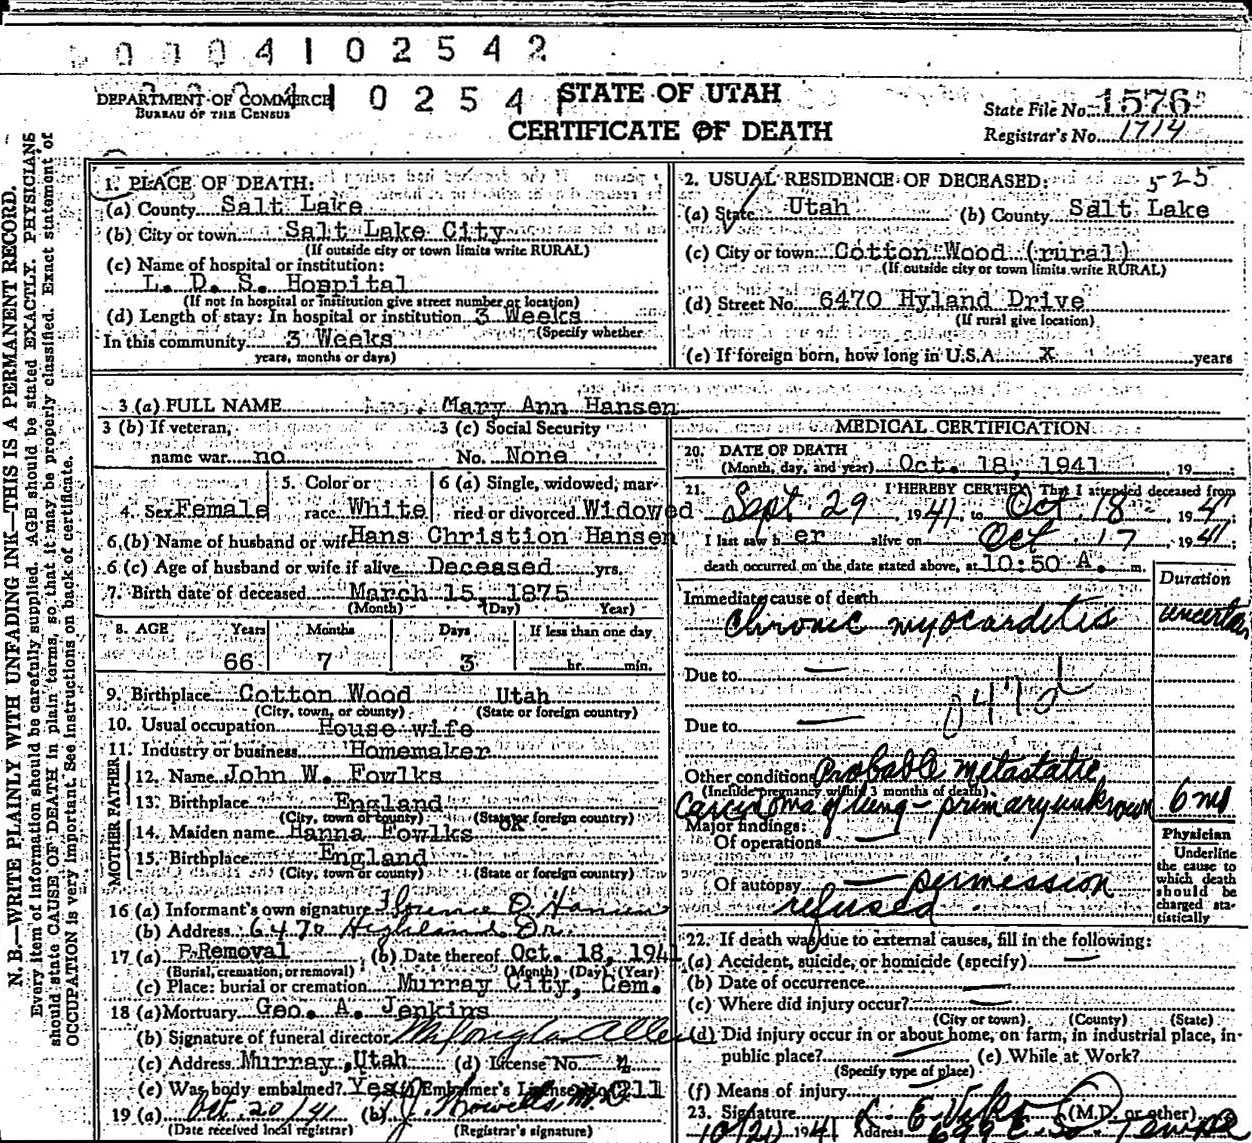 0004102542
DEPARTMENT OF COMMERCE
BUREAU OF THE CENSUS
STATE OF UTAH
CERTIFICATE OF DEATH
State File No. 1576
Registrar's No. 1714
N. B.—WRITE PLAINLY WITH UNFADING INK—THIS IS A PERMANENT RECORD.
Every item of information should be carefully supplied. AGE should be stated EXACTLY. PHYSICIANS
should state CAUSE OF DEATH in plain terms, so that it may be properly classified. Exact statement of
OCCUPATION is very important. See instructions on back of certificate.
1. PLACE OF DEATH:
(a) County Salt Lake
(b) City or town Salt Lake City
(If outside city or town limits write RURAL)
(c) Name of hospital or institution:
L. D. S. Hospital
(If not in hospital or institution give street number or location)
(d) Length of stay: In hospital or institution 3 Weeks
(Specify whether
In this community 3 Weeks
years, months or days)
2. USUAL RESIDENCE OF DECEASED: 525
(a) State Utah (b) County Salt Lake
(c) City or town Cotton Wood (rural)
(If outside city or town limits write RURAL)
(d) Street No. 6470 Hyland Drive
(If rural give location)
(e) If foreign born, how long in U.S.A. x years
3 (a) FULL NAME Mary Ann Hansen
3 (b) If veteran, 3 (c) Social Security
name war no No. None
4. Sex Female
5. Color or
race White
6 (a) Single, widowed, mar-
ried or divorced Widowed
6 (b) Name of husband or wife Hans Christion Hansen
6 (c) Age of husband or wife if alive Deceased yrs.
7. Birth date of deceased March 15, 1875
(Month) (Day) Year)
8. AGE Years Months Days If less than one day
66 7 3 hr. min.
9. Birthplace Cotton Wood Utah
(City, town, or county) (State or foreign country)
10. Usual occupation House wife
11. Industry or business Homemaker
FATHER
12. Name John W. Fowlks
13. Birthplace England
(City, town or county) (State or foreign country)
MOTHER
14. Maiden name Hanna Fowlks OK
15. Birthplace England
(City, town or county) (State or foreign country)
16 (a) Informant's own signature Hansen
(b) Address 6470 Highland Dr.
17 (a) Removal (b) Date thereof Oct. 18, 1941
(Burial, cremation, or removal) (Month) (Day) (Year)
(c) Place: burial or cremation Murray City, Cem.
18 (a) Mortuary Geo. A. Jenkins
(b) Signature of funeral director M. Douglas Allen
(c) Address Murray, Utah (d) License No. 4
(e) Was body embalmed? Yes (f) Embalmer's License No. 211
19 (a) Oct. 20/41 (b)
(Date received local registrar) (Registrar's signature)
MEDICAL CERTIFICATION
20. DATE OF DEATH
(Month, day, and year) Oct. 18, 1941, 19 ;
21. I HEREBY CERTIFY, That I attended deceased from
Sept 29 1941, to Oct 18, 194 ;
I last saw her alive on Oct 17, 1941;
death occurred on the date stated above, at 10:50 A. m.
Duration
Immediate cause of death
chronic myocarditis uncertain
Due to —
Due to —
Other conditions Probable metastatic
(Include pregnancy within 3 months of death)
Carcinoma of lung - primary unknown 6 mo
Major findings:
Of operations —
Of autopsy — permission
refused
Physician
Underline
the cause to
which death
should be
charged sta-
tistically
22. If death was due to external causes, fill in the following:
(a) Accident, suicide, or homicide (specify) —
(b) Date of occurrence —
(c) Where did injury occur? —
(City or town) (County) (State)
(d) Did injury occur in or about home, on farm, in industrial place, in
public place? — (e) While at Work?
(Specify type of place)
(f) Means of injury —
23. Signature (M.D. or other)
10/21 1941 Address 699 E. So. Temple